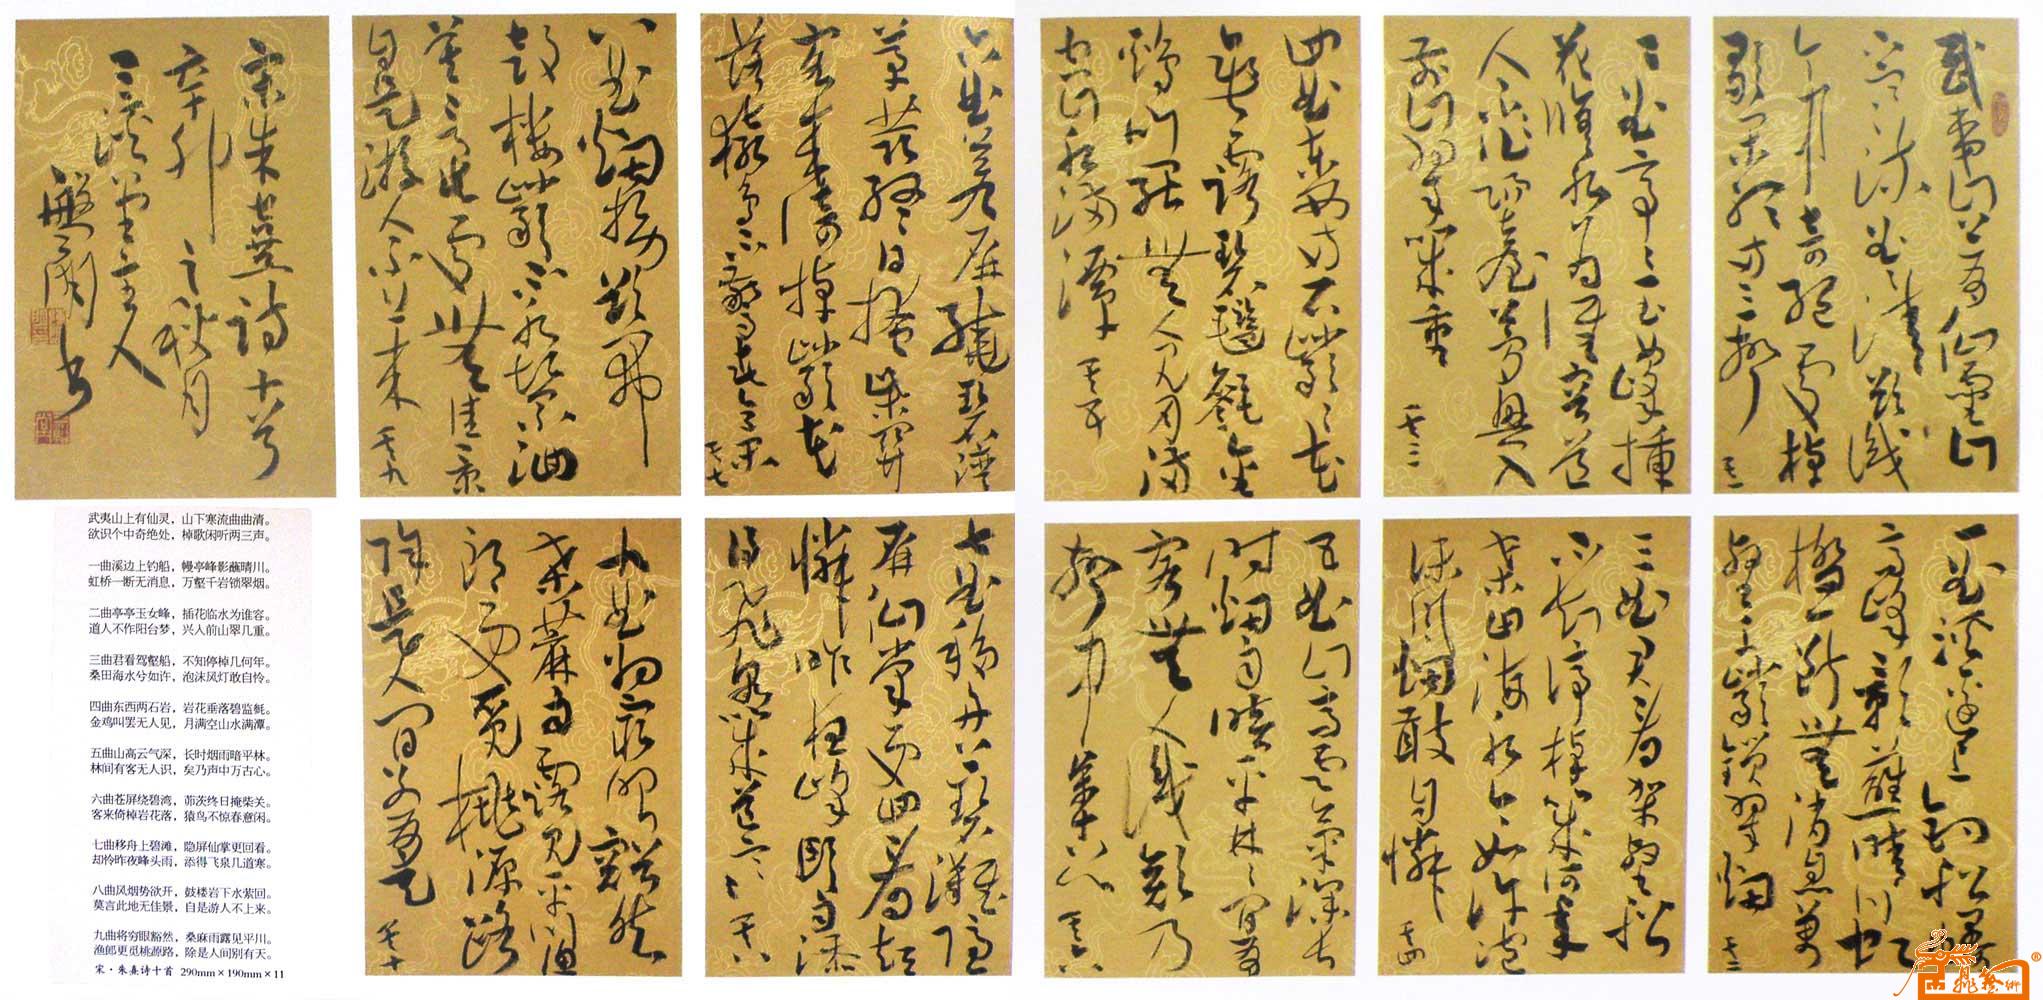 武夷山上有仙靈山
下寒流曲曲清欲識
个中奇絕處棹
歌閑聽两三聲 其一
一曲溪邊上釣船幔
亭峰影蘸晴川虹
橋一斷無消息萬
壑千巖鎖翠煙 其二
二曲亭亭玉女峰插
花臨水為誰容道
人不作陽臺夢興入
前山翠幾重 其三
三曲君看架壑船
不知停棹幾何年
桑田海水兮如許泡
沫風燈敢自憐 其四
四曲東西两石巖巖花
垂露碧毿金
鷄叫罷無人見月滿
空山水滿潭 其五
五曲山高雲氣深長
時煙雨暗平林林間有
客無人識欸乃
聲中萬古心 其六
六曲蒼屏繞碧灣
茅茨終日掩柴關
客來倚棹巖花
落猿鳥不驚春意閑 其七
七曲移舟上碧灘隱
屏仙掌更回看却
憐昨夜峰頭雨添
得飛泉幾道寒 其八
八曲煙勢欲開
鼓樓巖下水縈洄
莫言此處無佳景
自是游人不上來 其九
九曲將窮眼豁然
桑麻雨露見平川漁
郎更覓桃源路
除是人間別有天 其十
宋朱熹詩十首
辛卯之秋月
三溪堂主人
书
武夷山上有仙灵，山下寒流曲曲清。
欲识个中奇绝处，棹歌闲听两三声。
一曲溪边上钓船，幔亭峰影蘸晴川。
虹桥一断无消息，万壑千岩锁翠烟。
二曲亭亭玉女峰，插花临水为谁容。
道人不作阳台梦，兴入前山翠几重。
三曲君看驾壑船，不知停棹几何年。
桑田海水兮如许，泡沫风灯敢自怜。
四曲东西两石岩，岩花垂落碧监毵。
金鸡叫罢无人见，月满空山水满潭。
五曲山高云气深，长时烟雨暗平林。
林间有客无人识，矣乃声中万古心。
六曲苍屏绕碧湾，茆茨终日掩柴关。
客来倚棹岩花落，猿鸟不惊春意闲。
七曲移舟上碧滩，隐屏仙掌更回看。
却怜昨夜峰头雨，添得飞泉几道寒。
八曲风烟势欲开，鼓楼岩下水萦回。
莫言此地无佳景，自是游人不上来。
九曲将穷眼豁然，桑麻雨露见平川。
渔郎更觅桃源路，除是人间别有天。
宋·朱熹诗十首 290mm×190mm×11